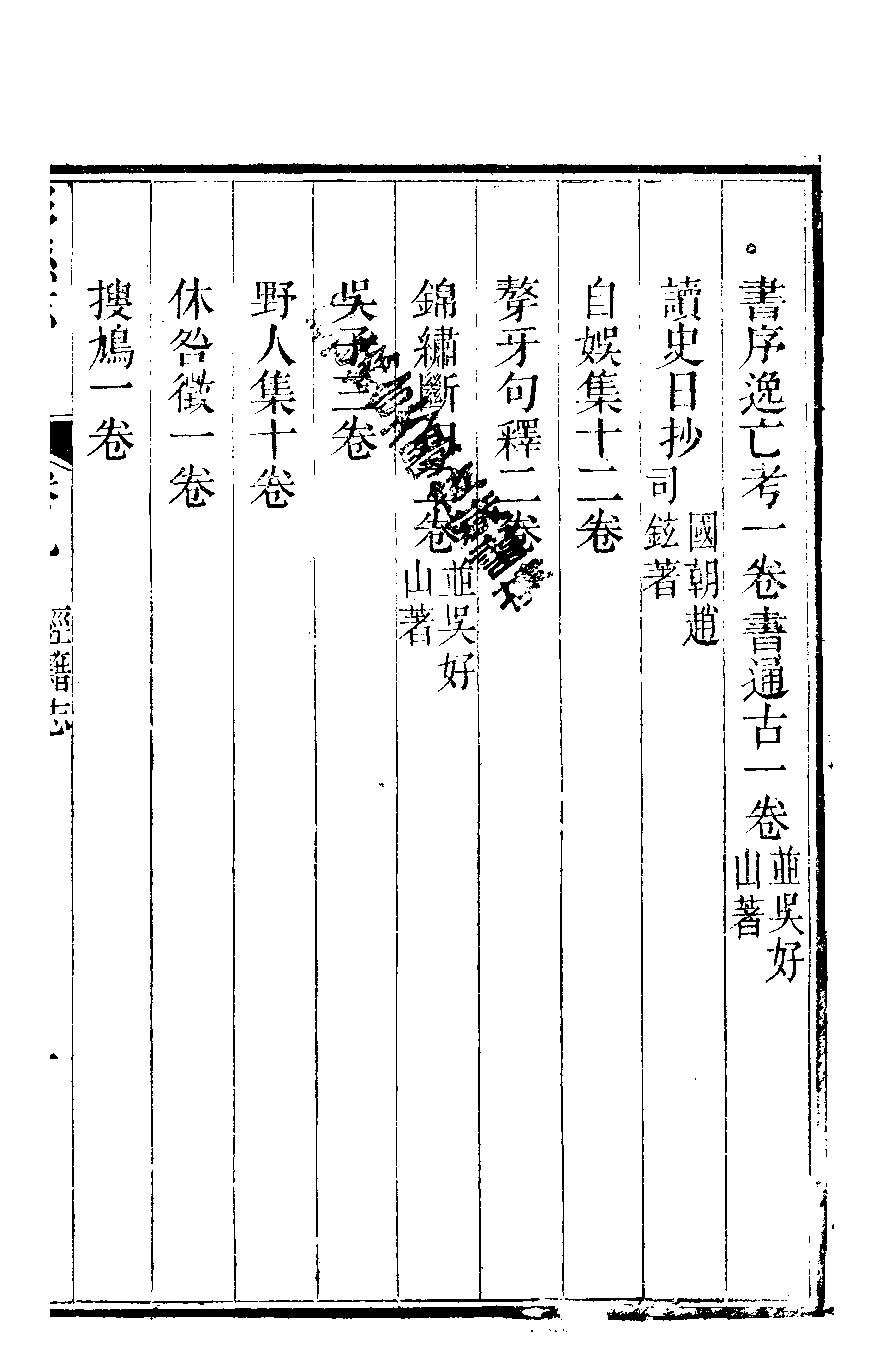 書序逸亡考一卷書通古一卷並吳好山著
讀史日抄國朝趙司鉉著
自娛集十二卷
聱牙句釋二卷
錦繡斷 卷並吳好山著
吳子三卷
野人集十卷
休咎徵一卷
搜鳩一卷
經籍志